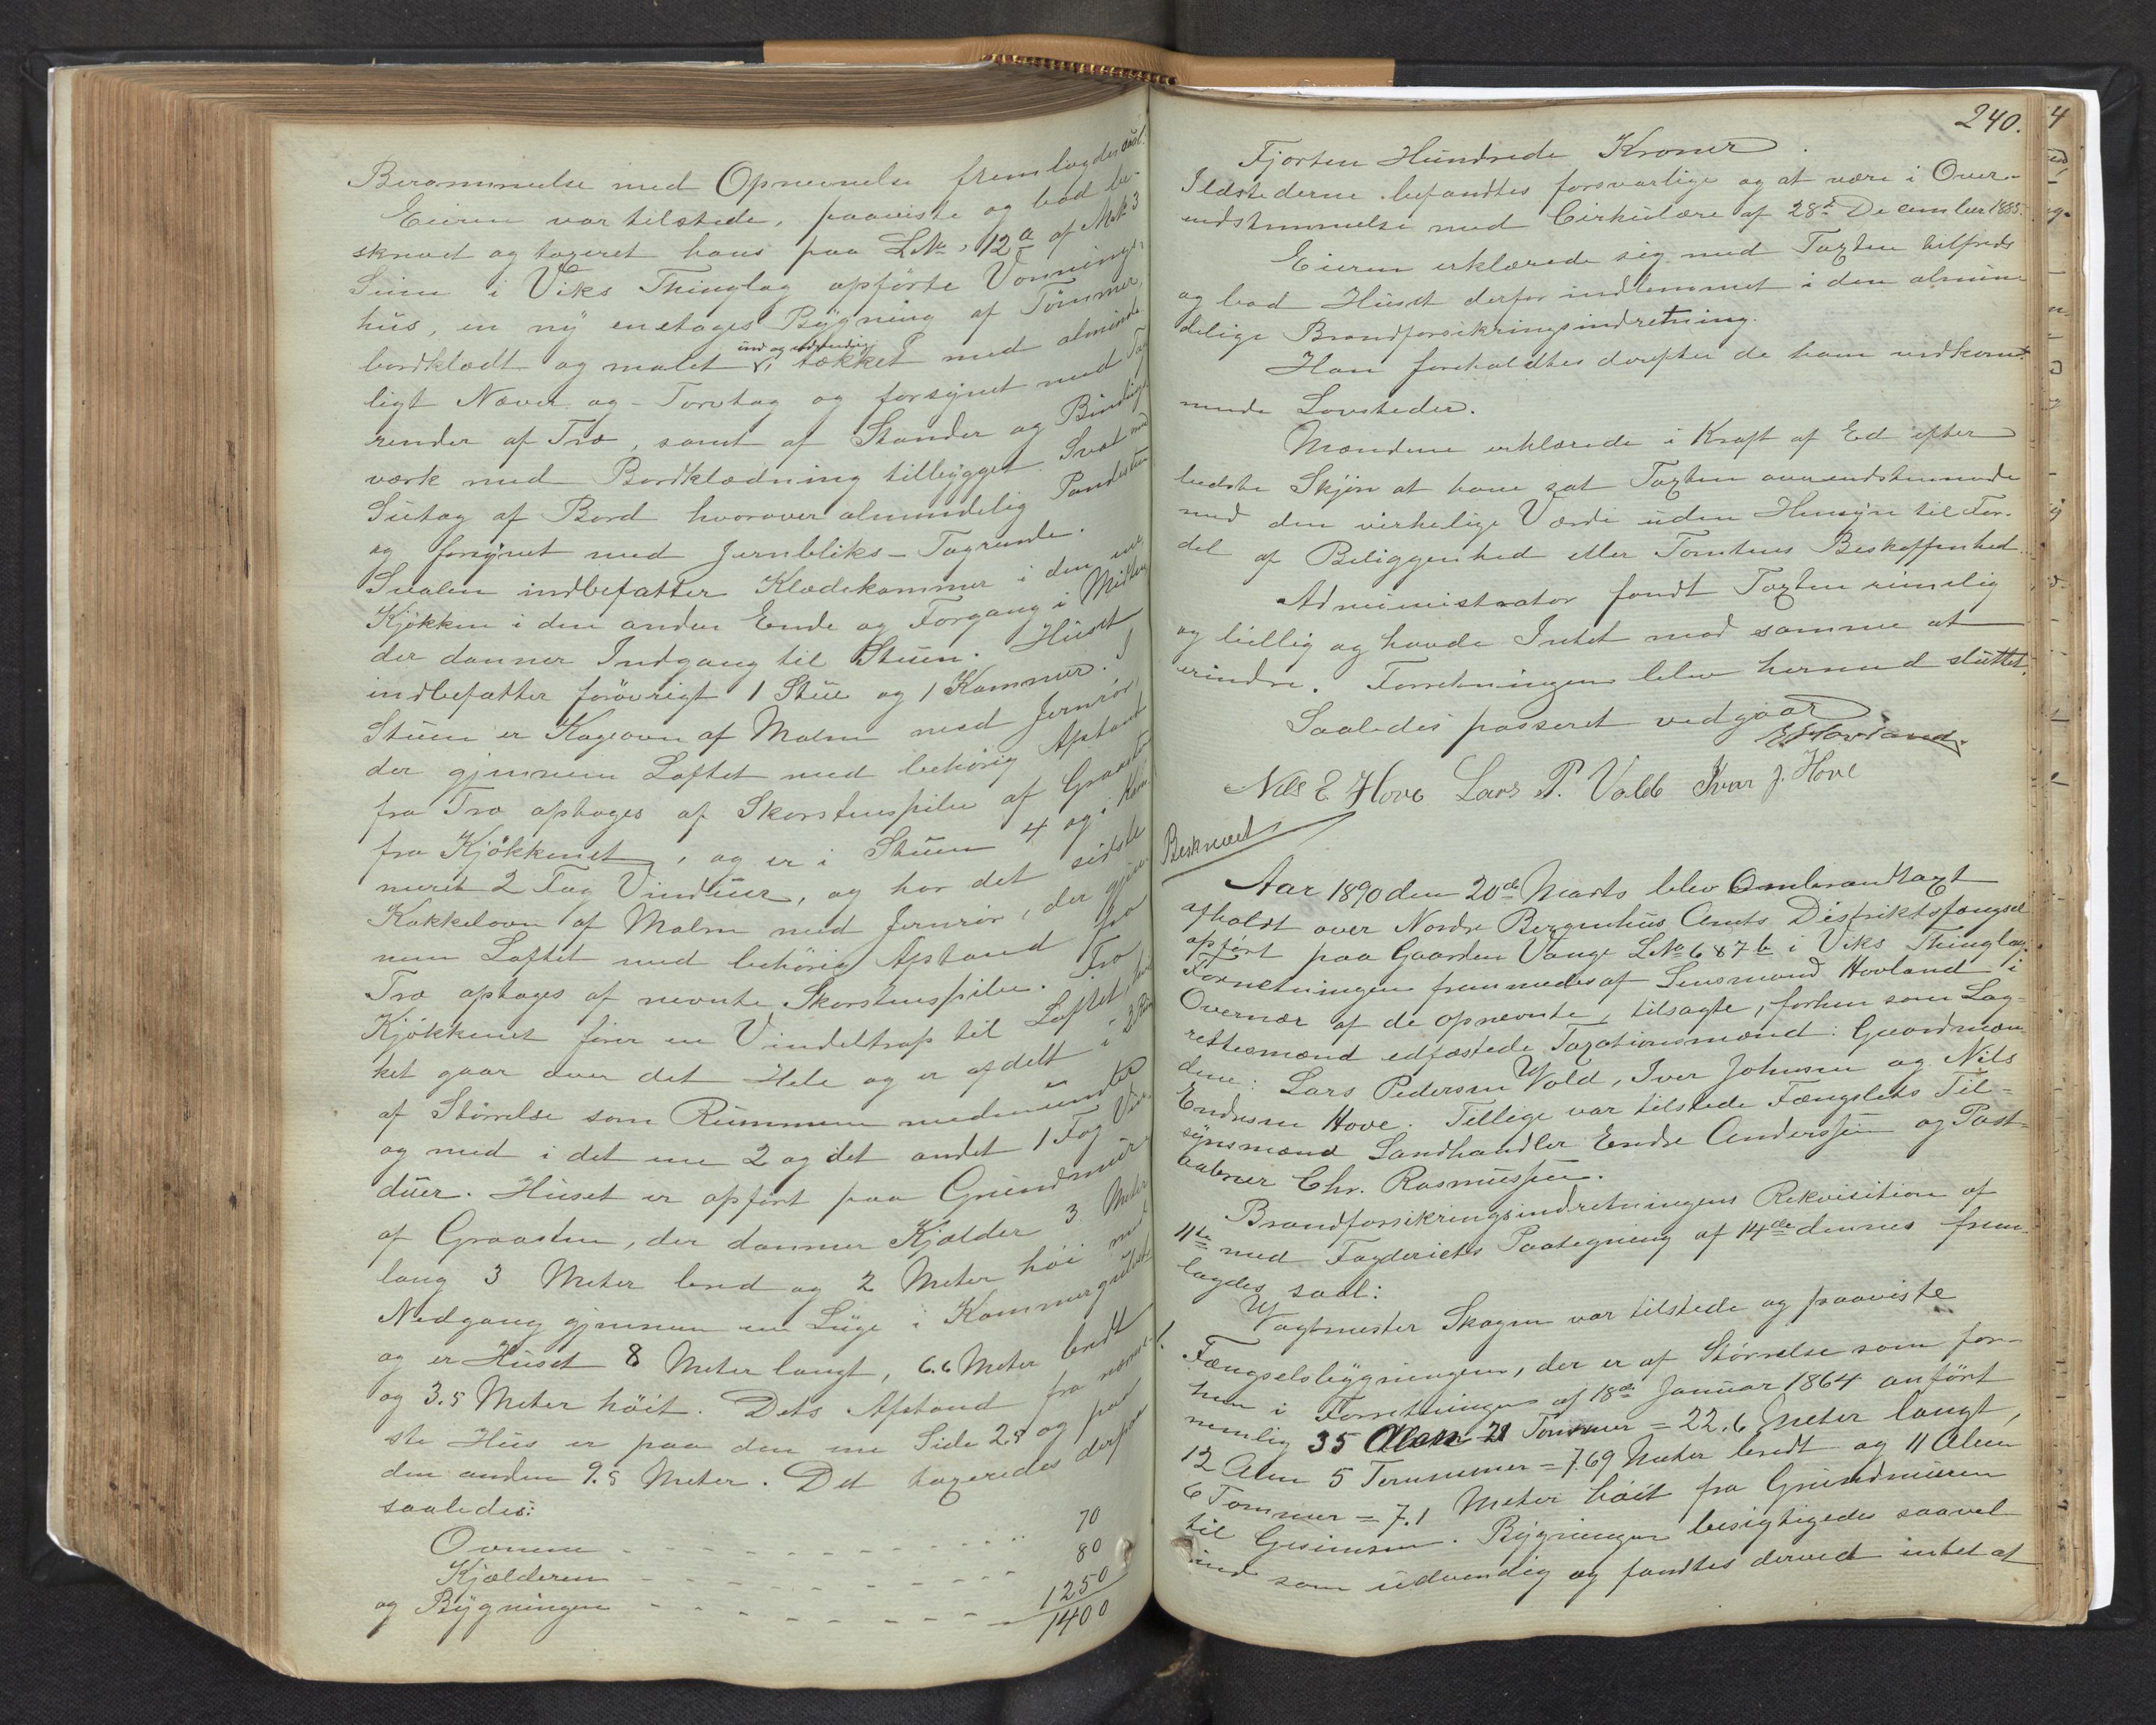 Berammelse med Opnevnelse fremlagdes saal:
Eieren var tilstede, paaviste og bad be-
skrevet og taxeret hans paa LNo 12a af Mk 3
i Viks Thinglag opførte Vonnings-
hus, en ny enetages Bygning af Tømmer,
bordklædt og malet ind og udvendig, tækket med alminde
ligt Næver og Torvtag og forsynet med Tag
render af Træ, samt af Stænder og Bindings
værk med Bordklædning tilbygget Sval med
Sutag af Bord hvorover almindelig Pandesten
og forsynet med Jernbliks-Tagrende.
Svalen indbefatter Klædekammer i den ene
Kjøkken i den anden Ende og Forgang i Midten
der danner Indgang til Stuen. Huset
indbefatter forøvrigt 1 Stue og 1 Kammer. I
Stuen er Kageovn af Malm med Jernrør,
der gjennem Loftet med behørig Afstand
fra Træ optages af Skorstenspibe af Graasten
fra Kjøkkenet, og er i Stuen 4 og i Kam-
meret 2 Fag Vinduer, og har det sidste
Kakkelovn af Malm med Jernrør, der gjen-
nem Loftet med behørig Afstand fra
Træ optages af nevnte Skorstenspibe. Fra
Kjøkkenet fører en Vindeltrap til Loftet, hvil
ket gaar over det Hele og er afdelt i 3 Rum
af Størrelse som Rummene nedenunder
og med i det ene 2 og det andet 1 Fag Vin
duer. Huset er opført paa Grundmure
af Graasten, der danner Kjælder 3 Meter
lang 3 Meter bred og 2 Meter høi med
Nedgang gjennem en Luge i Kammergulvet
og er Huset 8 Meter langt, 6.6 Meter bredt
og 3.5 Meter høit. Dets Afstand fra nærme-
ste Hus er paa den ene Side 2.5 og paa
den anden 9.5 Meter. Det taxeredes derpaa
saaledes:
Ovnene - - - - - - - - - - 70
Kjælderen - - - - - - - - - - 80
og Bygningen - - - - - - - - - 1250
1400
240.
Fjorten Hundrede Kroner.
Ildstederne befandtes forsvarlige og at være i Over-
endstemmelse med Cirkulære af 28d December 1885.
Eieren erklærede sig med Taxten tilfreds
og bad Huset derfor indlemmet i den almin
delige Brandforsikringsindretning.
Han foreholdtes derefter de ham vedkom-
mende Lovsteder.
Mændene erklærede i Kraft af Ed efter
bedste Skjøn at have sat Taxten overendstemmende
med den virkelige Værdi uden Hensyn til For-
del af Beliggenhed eller Tomtens Beskaffenhed.
Administrator fandt Taxten rimelig
og billig og havde Intet mod samme at
erindre. Forretningen blev hermed sluttet.
Saaledes passeret vedgaar
E Hovland.
Nils E. Hove Lars P. Vold Ivar J. Hove
Beskrevet
Aar 1890 den 20de Marts blev Ombrandtaxt
afholdt over Nordre Bergenhus Amts Distriktsfængsel
opført paa Gaarden Vange LNo 687b i Viks Thinglag.
Forretningen fremmedes af Lensmand Hovland i
Overvær af de opnevnte, tilsagte, forhen som Lag-
rettesmænd edfæstede Taxationsmænd: Gaardmæn
dene: Lars Pedersen Vold, Iver Johnsen og Nils
Endresen Hove. Tillige var tilstede Fængslets Til-
synsmænd Landhandler Endre Anderssen og Post-
aabner Chr. Rasmussen.
Brandforsikringsindretningens Rekvisition af
11te med Fogderiets Paategning af 14de dennes frem-
lagdes saal:
Vagtmester Skagen var tilstede og paaviste
Fængselsbygningen, der er af Størrelse som for-
hen i Forretningen af 18de Januar 1864 anført
nemlig 35 Alen 21 Tommer = 22.6 Meter langt,
12 Alen 5 Tommer = 7.69 Meter bredt og 11 Alen
6 Tommer = 7.1 Meter høit fra Grundmuren
til Gesimsen. Bygningen besigtigedes saavel
ind som udvendig og fandtes derved intet at